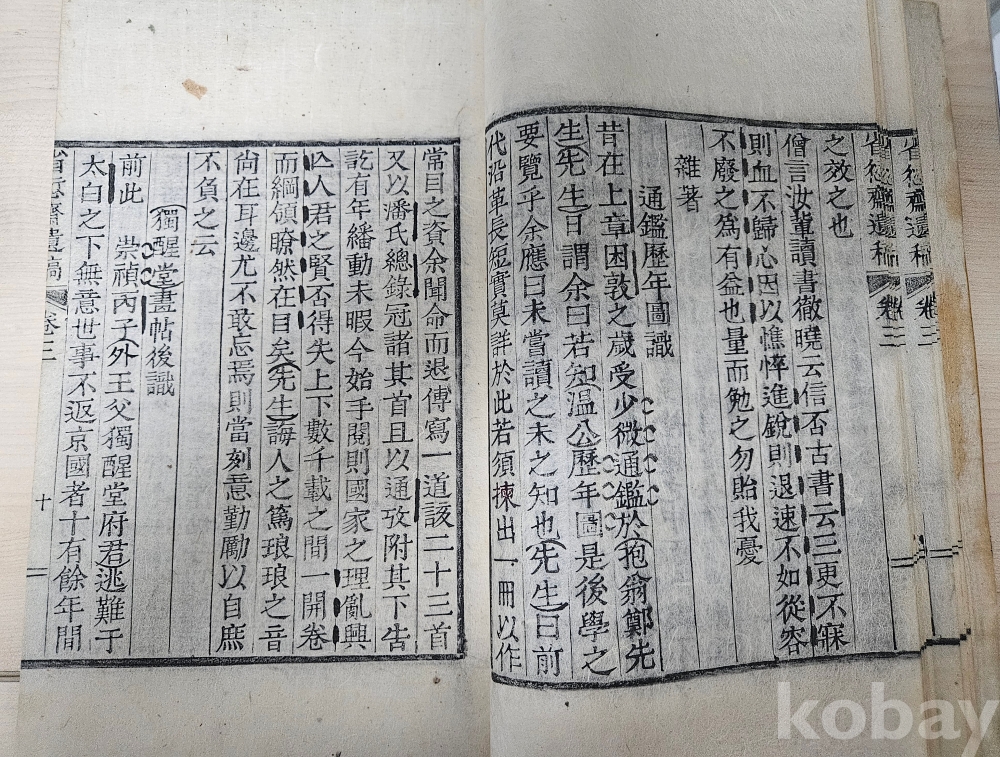 省愆齋遺稿 卷二
之效之也
僧言汝輩讀書徹曉云信否古書云三更不寐
則血不歸心因以憔悴進銳則退速不如從容
不廢之爲有益也量而勉之勿貽我憂
雜著
通鑑歷年圖識
昔在上章困敦之歲受少微通鑑於抱翁鄭先
生先生曰謂余曰若知溫公歷年圖是後學之
要覽乎余應曰未嘗讀之未之知也先生曰前
代沿革長短實莫詳於此若須揀出一冊以作
常目之資余聞命而退傳寫一道該二十三首
又以潘氏總錄冠諸其首且以通攷附其下告
訖有年繙動未暇今始手閱則國家之理亂興
亾人君之賢否得失上下數千載之間一開卷
而綱領瞭然在目矣先生誨人之篤琅琅之音
尙在耳邊尤不敢忘焉則當刻意勤勵以自庶
不負之云
獨醒堂畫帖後識
前此 崇禎丙子外王父獨醒堂府君逃難于
太白之下無意世事不返京國者十有餘年間
齋遺稿 卷二 十
kobay